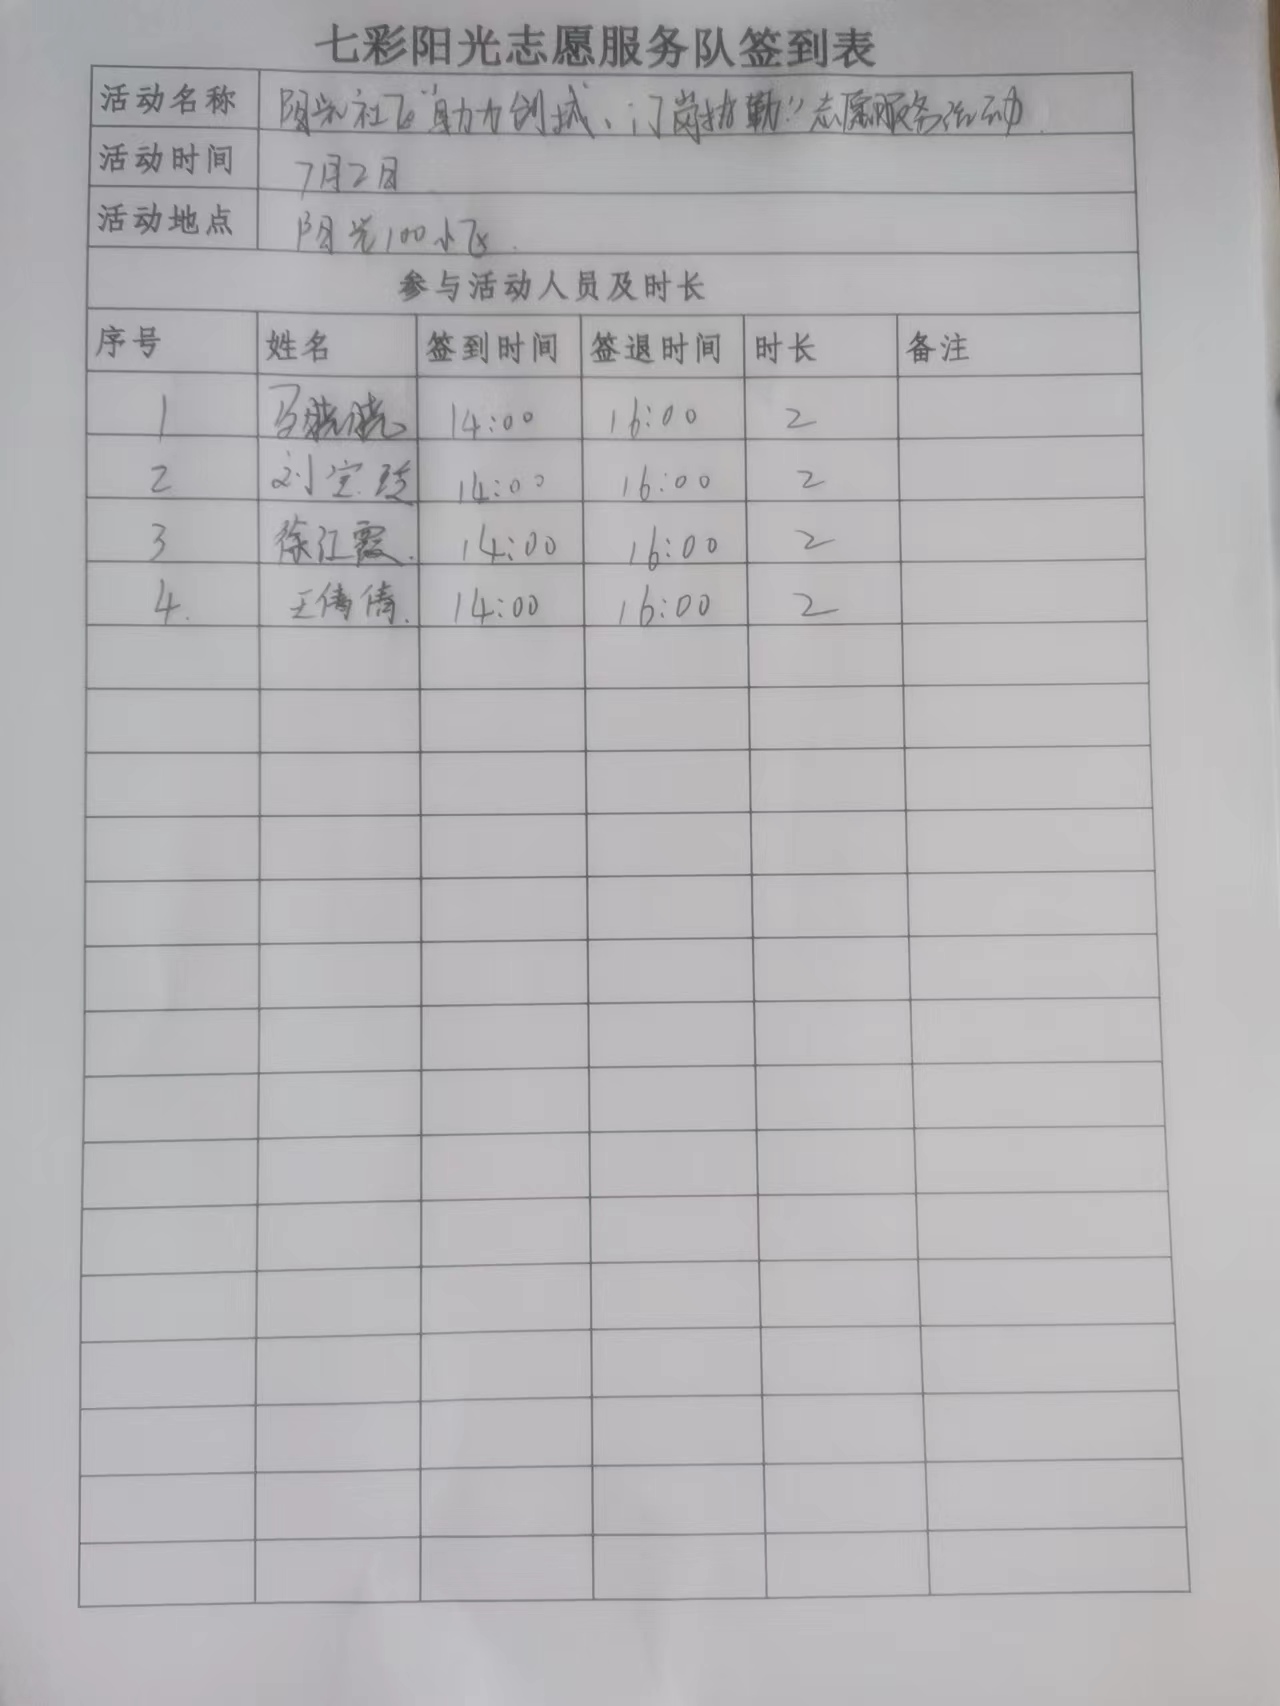 七彩阳光志愿服务队签到表
活动名称 阳光社区"助力创城、门岗执勤"志愿服务活动
活动时间 7月2日
活动地点 阳光100小区.
参与活动人员及时长
序号 姓名 签到时间 签退时间 时长 备注
1 马晓晓 14:00 16:00 2
2 刘宝 14:00 16:00 2
3 徐江霞. 14:00 16:00 2
4. 王倩倩. 14:00 16:00 2